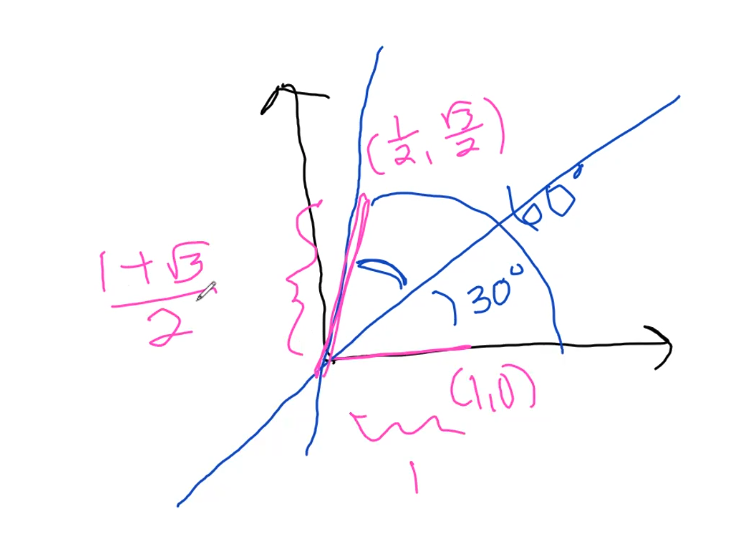 (1/2, √3/2)
60°
1+√3/2
30°
(1,0)
1